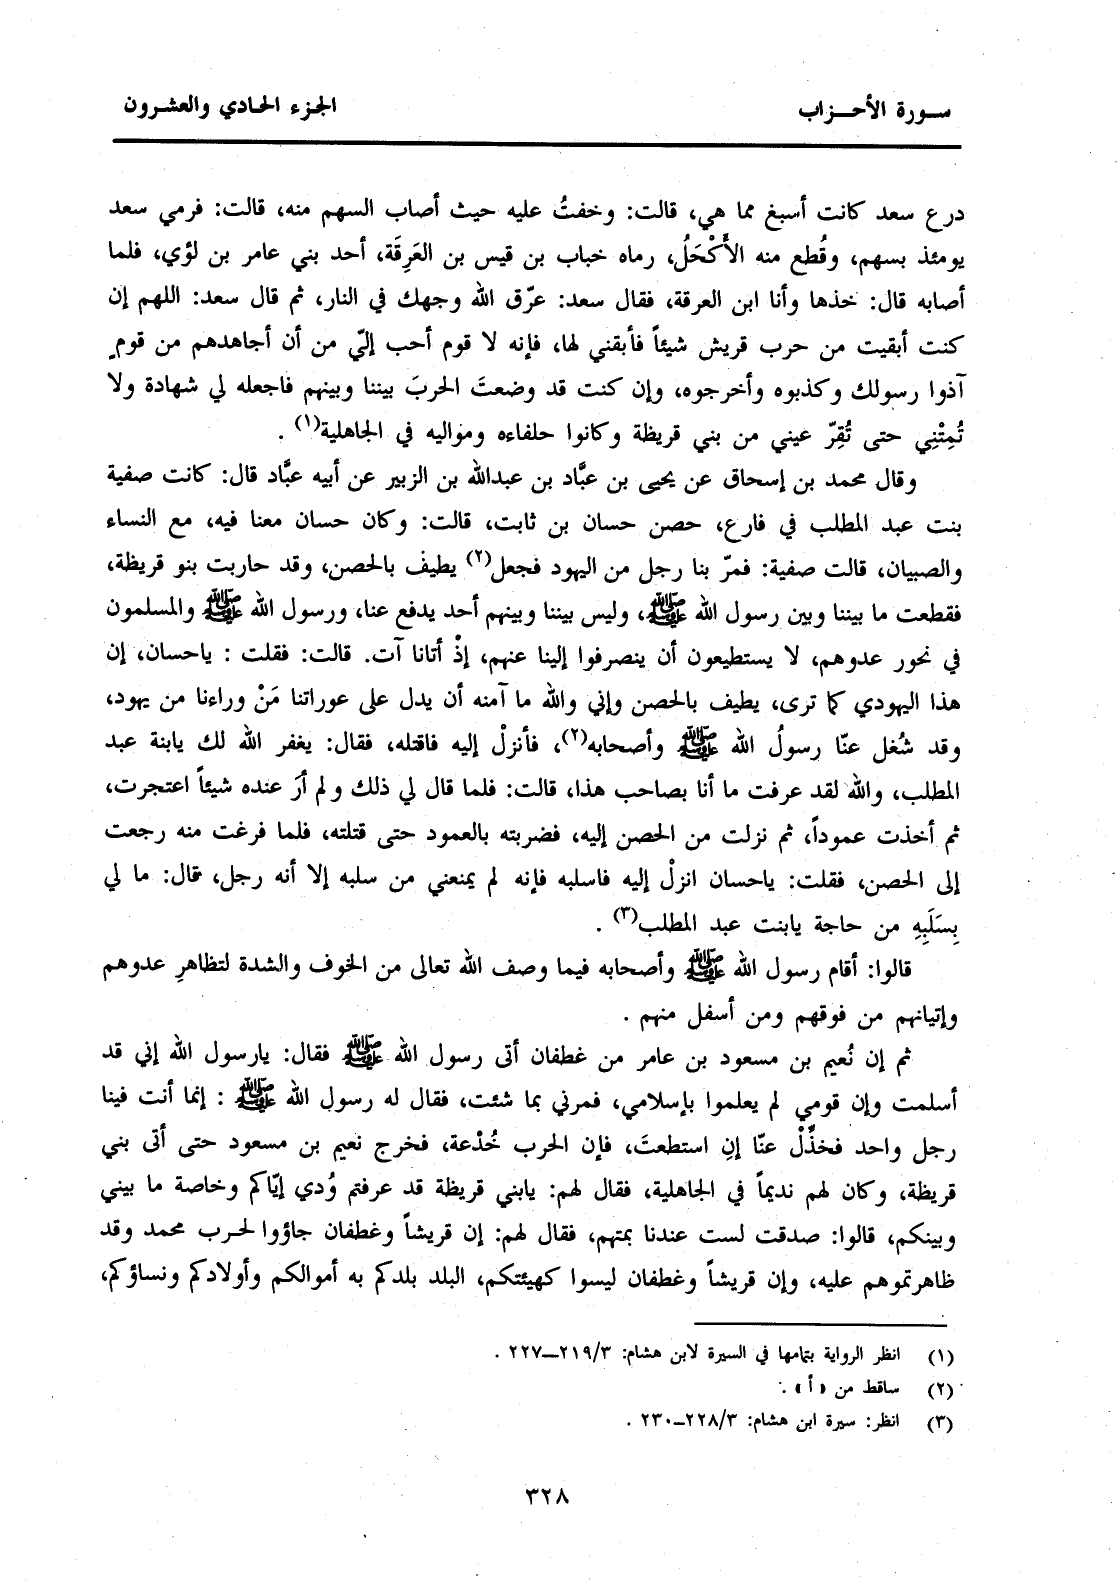 سورة الأحزاب
الجزء الحادي والعشرون
درع سعد كانت أسبغ مما هي، قالت: وخفتُ عليه حيث أصاب السهم منه، قالت: فرمي سعد
يومئذ بسهم، وقُطع منه الأَكْحَلُ، رماه خباب بن قيس بن العَرِقَة، أحد بني عامر بن لؤي، فلما
أصابه قال: خذها وأنا ابن العرقة، فقال سعد: عرّق الله وجهك في النار، ثم قال سعد: اللهم إن
كنت أبقيت من حرب قريش شيئاً فأبقني لها، فإنه لا قوم أحب إليّ من أن أجاهدهم من قومٍ
آذوا رسولك وكذبوه وأخرجوه، وإن كنت قد وضعتَ الحربَ بيننا وبينهم فاجعله لي شهادة ولا
تُمِتْنِي حتى تُقِرّ عيني من بني قريظة وكانوا حلفاءه ومواليه في الجاهلية(١) .
وقال محمد بن إسحاق عن يحيى بن عبَّاد بن عبدالله بن الزبير عن أبيه عبَّاد قال: كانت صفية
بنت عبد المطلب في فارع، حصن حسان بن ثابت، قالت: وكان حسان معنا فيه، مع النساء
والصبيان، قالت صفية: فمرّ بنا رجل من اليهود فجعل(٢) يطيف بالحصن، وقد حاربت بنو قريظة،
فقطعت ما بيننا وبين رسول الله ﷺ، وليس بيننا وبينهم أحد يدفع عنا، ورسول الله ﷺ والمسلمون
في نحور عدوهم، لا يستطيعون أن ينصرفوا إلينا عنهم، إذْ أتانا آت. قالت: فقلت : ياحسان، إن
هذا اليهودي كما ترى، يطيف بالحصن وإني والله ما آمنه أن يدل على عوراتنا مَنْ وراءنا من يهود،
وقد شُغل عنّا رسولُ الله ﷺ وأصحابه(٢)، فأنزلْ إليه فاقتله، فقال: يغفر الله لك يابنة عبد
المطلب، والله لقد عرفت ما أنا بصاحب هذا، قالت: فلما قال لي ذلك ولم أرَ عنده شيئاً اعتجرت،
ثم أخذت عموداً، ثم نزلت من الحصن إليه، فضربته بالعمود حتى قتلته، فلما فرغت منه رجعت
إلى الحصن، فقلت: ياحسان انزلْ إليه فاسلبه فإنه لم يمنعني من سلبه إلا أنه رجل، قال: ما لي
بِسَلَبِهِ من حاجة يابنت عبد المطلب(٣) .
قالوا: أقام رسول الله ﷺ وأصحابه فيما وصف الله تعالى من الخوف والشدة لتظاهرِ عدوهم
وإتيانهم من فوقهم ومن أسفل منهم .
ثم إن نُعيم بن مسعود بن عامر من غطفان أتى رسول الله ﷺ فقال: يارسول الله إني قد
أسلمت وإن قومي لم يعلموا بإسلامي، فمرني بما شئت، فقال له رسول الله ﷺ : إنما أنت فينا
رجل واحد فخذِّلْ عنّا إنِ استطعتَ، فإن الحرب خُدْعة، فخرج نعيم بن مسعود حتى أتى بني
قريظة، وكان لهم نديماً في الجاهلية، فقال لهم: يابني قريظة قد عرفتم وُدي إيّاكم وخاصة ما بيني
وبينكم، قالوا: صدقت لست عندنا بمتهم، فقال لهم: إن قريشاً وغطفان جاؤوا لحرب محمد وقد
ظاهرتموهم عليه، وإن قريشاً وغطفان ليسوا كهيئتكم، البلد بلدكم به أموالكم وأولادكم ونساؤكم،
(١) انظر الرواية بتمامها في السيرة لابن هشام: ٢١٩/٣—٢٢٧ .
(٢) ساقط من « أ » .
(٣) انظر: سيرة ابن هشام: ٢٢٨/٣—٢٣٠ .
٣٢٨